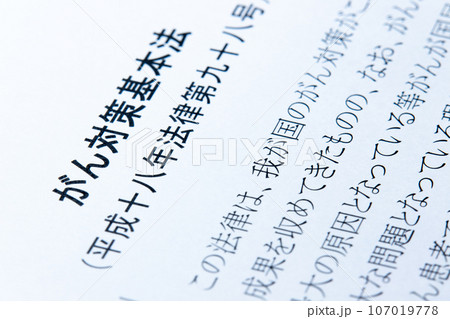 がん対策基本法
（平成十八年法律第九十八号）
この法律は、我が国のがん対策がこ
成果を収めてきたものの、なお、がん
大の原因となっている等がんが国民
大な問題となっている現
ん患者
PIXTA
pixta.jp - 107019778